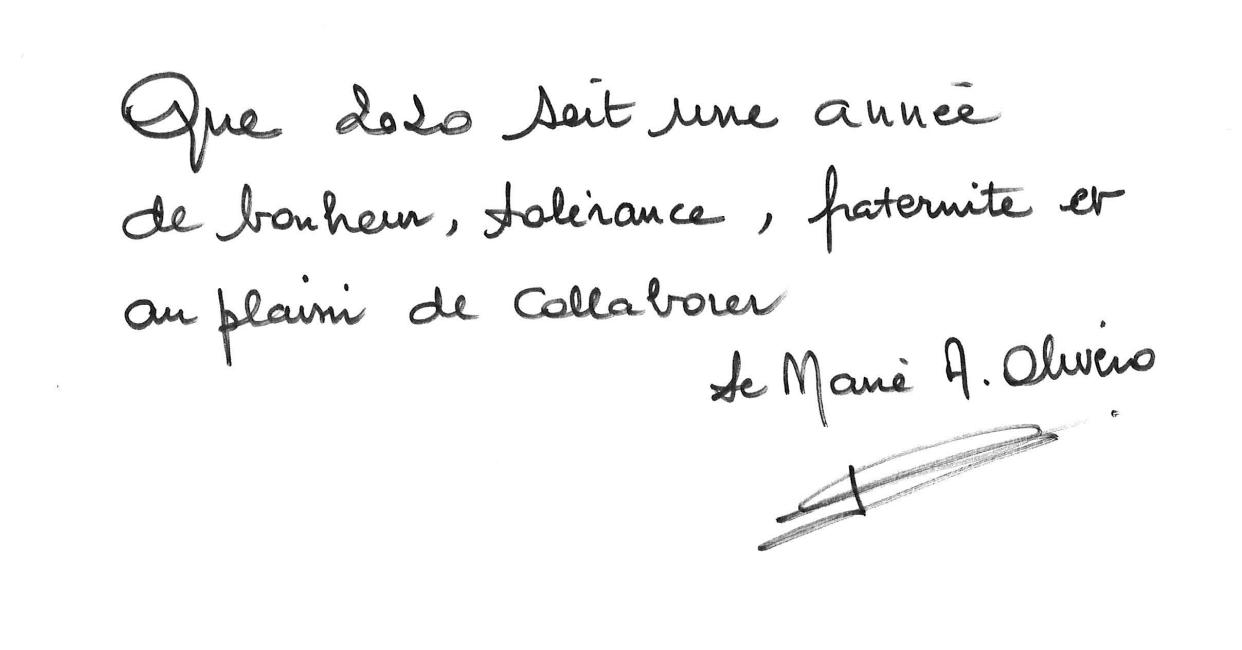 Que 2020 soit une année
de bonheur, tolérance, fraternité et
au plaisir de collaborer
Le Maire A. Olivéro